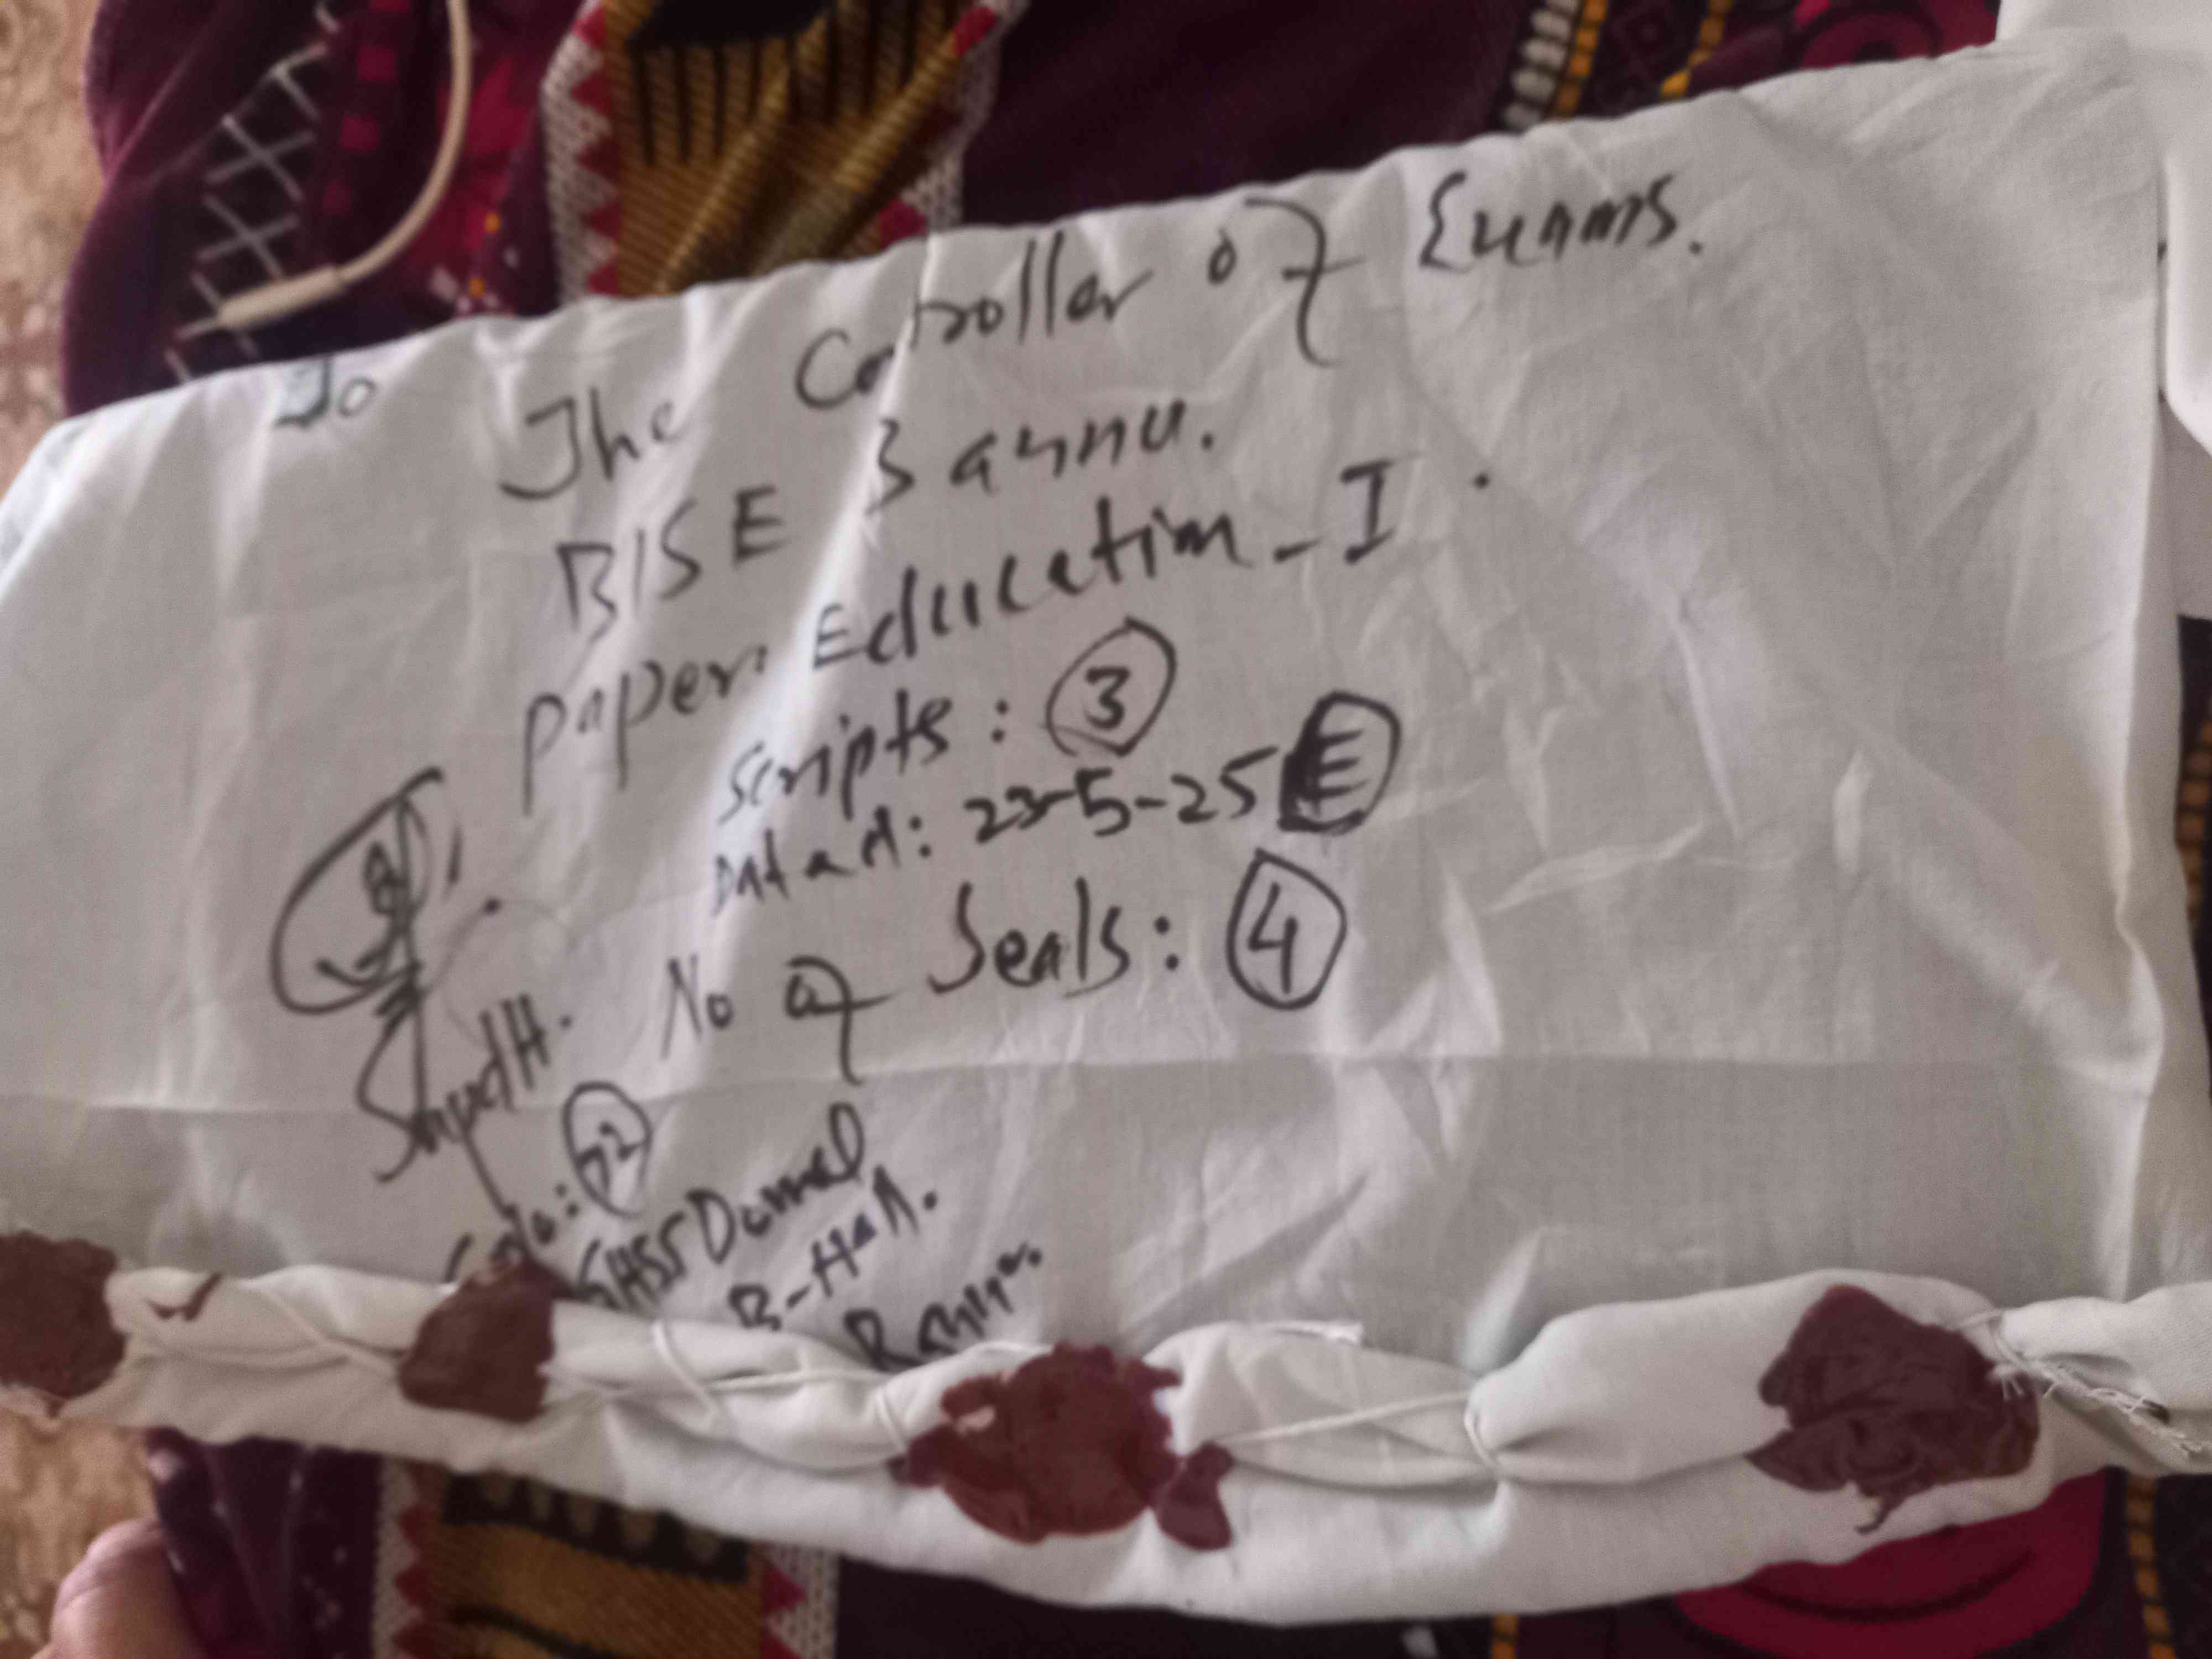 To
The Controller of Exams.
BISE Bannu.
Paper: Education-I.
Scripts: 3
Dated: 23-5-25 E
No of Seals: 4
Supdtt.
72
GHSS Domel
B-Hall.
Bannu.